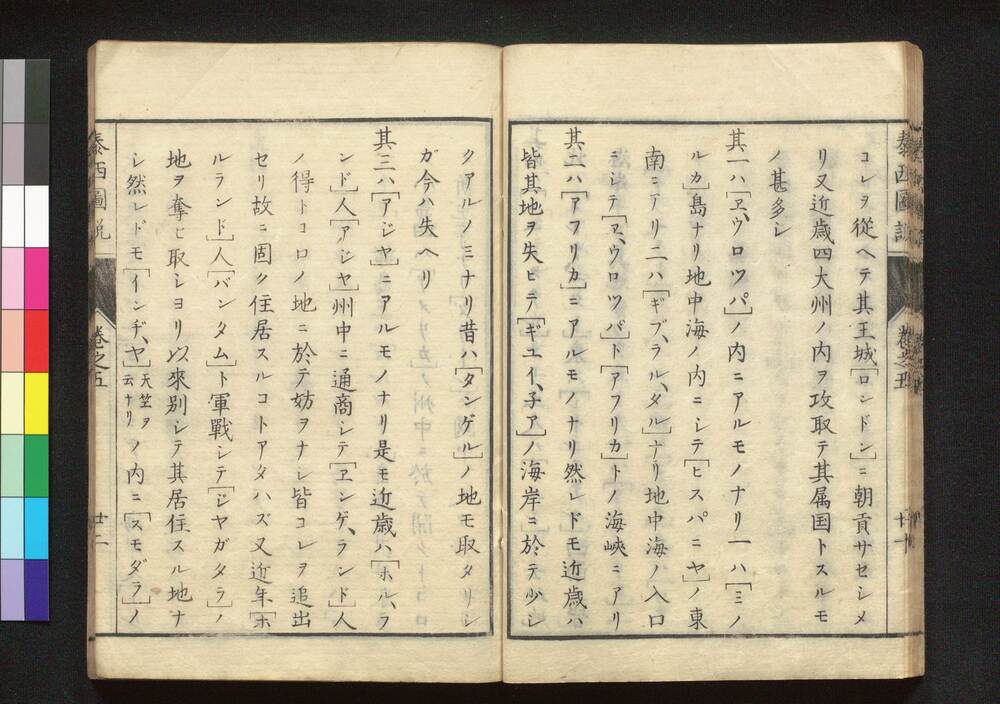 泰西圖説
卷之五
十一
コレヲ從ヘテ其王城[ロンドン]ニ朝貢サセシメ
リ又近歳四大州ノ内ヲ攻取テ其属国トスルモ
ノ甚多シ
其一ハ[ヱ、ウロツパ]ノ内ニアルモノナリ一ハ[ミノ
ルカ]島ナリ地中海ノ内ニシテ[ヒスパニヤ]ノ東
南ニアリ二ハ[ギブ、ラル、タル]ナリ地中海ノ入口
ニシテ[ヱ、ウロツパ]ト[アフリカ]トノ海峽ニアリ
其二ハ[アフリカ]ニアルモノナリ然レドモ近歳ハ
皆其地ヲ失ヒテ[ギユイ、子ア]ノ海岸ニ於テ少シ
クアルノミナリ昔ハ[タンゲル]ノ地モ取タリシ
ガ今ハ失ヘリ
其三ハ[アジヤ]ニアルモノナリ是モ近歳ハ[ホル、ラ
ンド]人[アジヤ]州中ニ通商シテ[ヱンゲ、ランド]人
ノ得トコロノ地ニ於テ妨ヲナシ皆コレヲ追出
セリ故ニ固ク住居スルコトアタハズ又近年[ホ
ルランド]人[バンタム]ト軍戰シテ[ジヤガタラ]ノ
地ヲ奪ヒ取シヨリ以來別シテ其居住スル地ナ
シ然レドモ[インヂ、ヤ]天竺ヲ云ナリノ内ニ[スモダラ]ノ
泰西圖説
卷之五
廿二